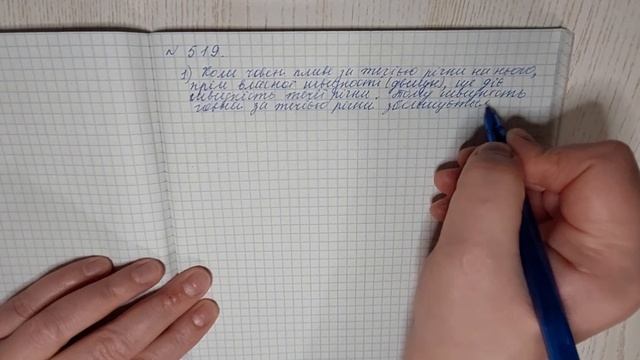 № 519.
1) Коли човен пливе за течією річки на нього,
крім власної швидкості (двигун), ще діє
швидкість течії річки. Тому швидкість
човна за течією річки збільшується